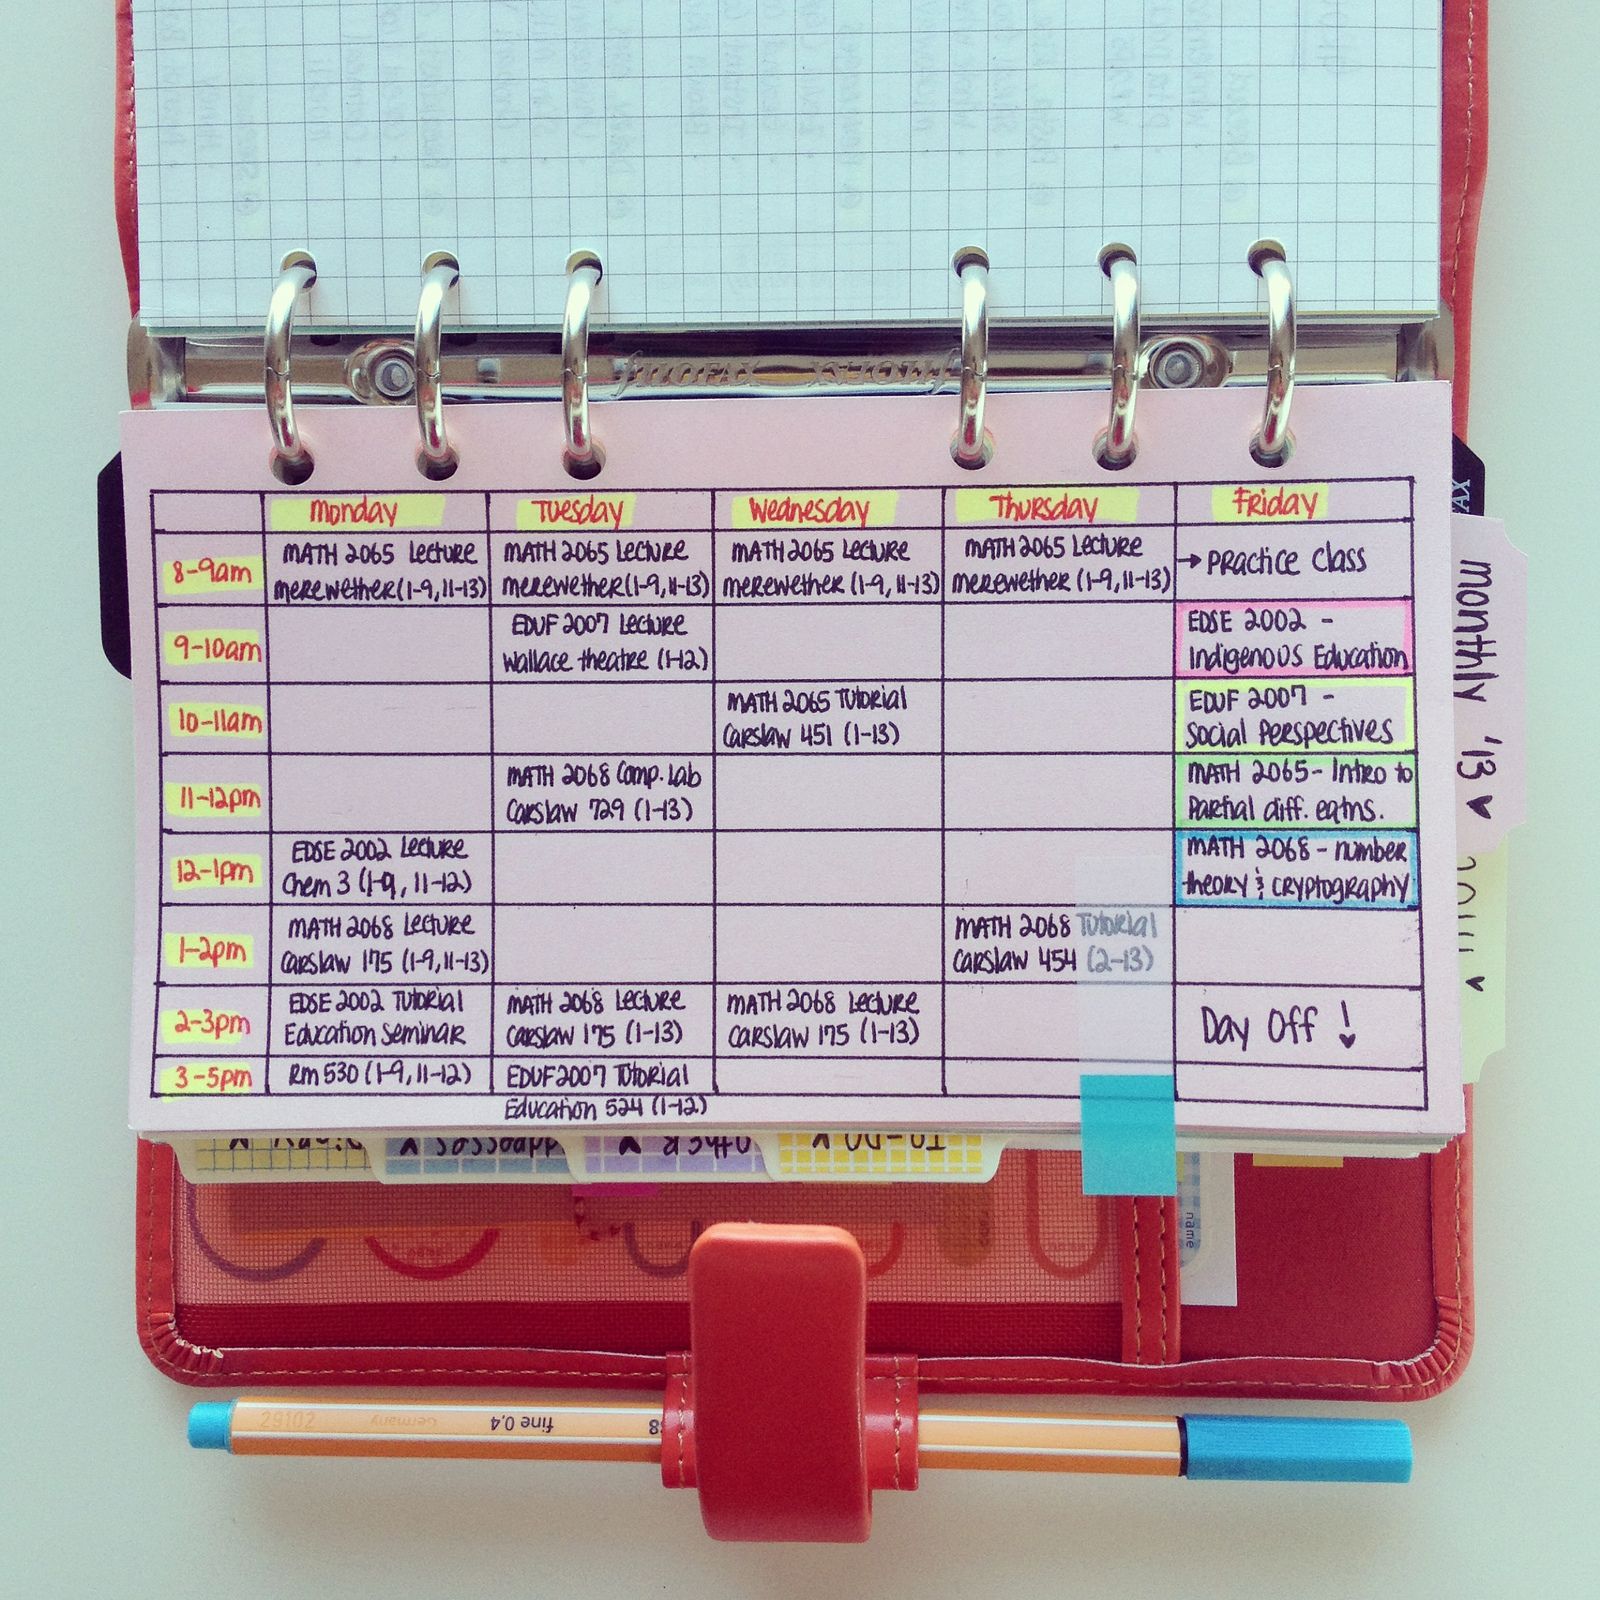 filofax
monday Tuesday Wednesday Thursday Friday
8-9am
MATH 2065 Lecture
merewether (1-9, 11-13)
MATH 2065 Lecture
merewether (1-9, 11-13)
MATH 2065 Lecture
merewether (1-9, 11-13)
MATH 2065 Lecture
merewether (1-9, 11-13)
→ Practice class
9-10am
EDUF 2007 Lecture
Wallace theatre (1-12)
EDSE 2002 -
Indigenous Education
10-11am
MATH 2065 Tutorial
Carslaw 451 (1-13)
EDUF 2007 -
Social Perspectives
11-12pm
MATH 2068 Comp. Lab
Carslaw 729 (1-13)
MATH 2065 - Intro to
Partial diff. eqtns.
12-1pm
EDSE 2002 Lecture
Chem 3 (1-9, 11-12)
MATH 2068 - number
theory & cryptography
1-2pm
MATH 2068 Lecture
Carslaw 175 (1-9, 11-13)
MATH 2068 Tutorial
Carslaw 454 (2-13)
2-3pm
EDSE 2002 Tutorial
Education Seminar
MATH 2068 Lecture
Carslaw 175 (1-13)
MATH 2068 Lecture
Carslaw 175 (1-13)
Day Off !
3-5pm
Rm 530 (1-9, 11-12)
EDUF2007 Tutorial
Education 524 (1-12)
monthly '13 ♥
diary
addresses
other ♥
TO-DO
name
29102 Germany fine 0,4 88